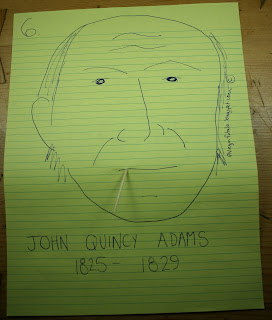 6
JOHN QUINCY ADAMS
1825- 1829